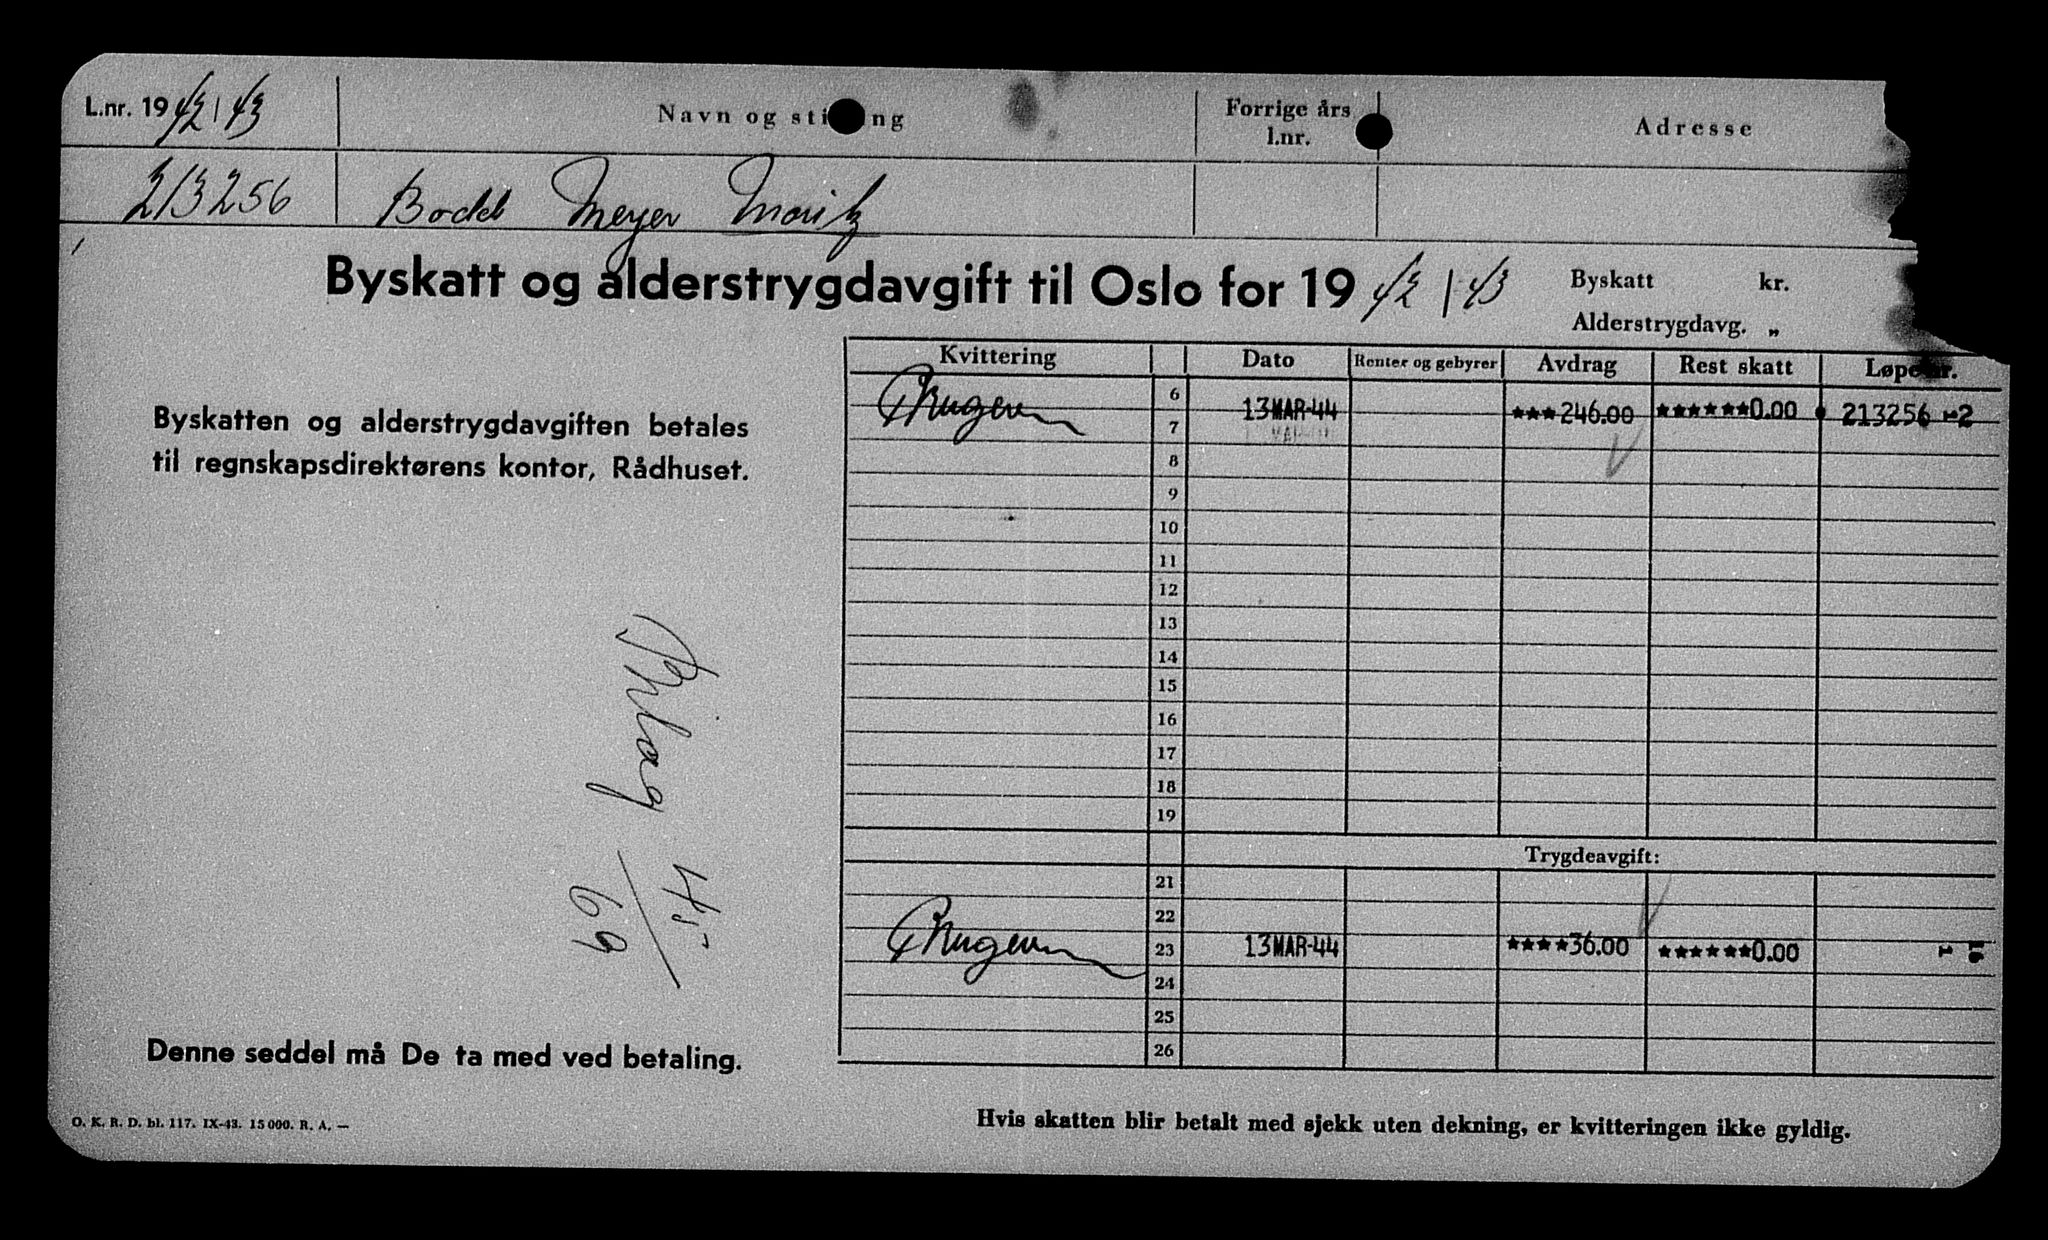 L.nr. 1942/43 Navn og stilling Forrige års l.nr. Adresse
213256 Bodd Meyer Moritz
Byskatt og alderstrygdavgift til Oslo for 1942/43
Byskatt kr.
Alderstrygdavg. „
Byskatten og alderstrygdavgiften betales
til regnskapsdirektørens kontor, Rådhuset.
Bilag 45/69
Denne seddel må De ta med ved betaling.
O. K. R. D. bl. 117. IX-43. 15000. R. A. —
Kvittering Dato Renter og gebyrer Avdrag Rest skatt Løpenr.
6 13 MAR-44 ★★★246.00 ★★★★★★0.00 213256
7
8
9
10
11
12
13
14
15
16
17
18
19
Trygdeavgift:
21
22
23 13 MAR-44 ★★★★36.00 ★★★★★★0.00
24
25
26
Hvis skatten blir betalt med sjekk uten dekning, er kvitteringen ikke gyldig.